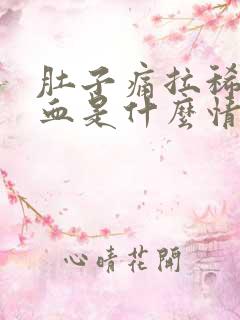 肚子痛拉稀
血是什麼情
心晴花開